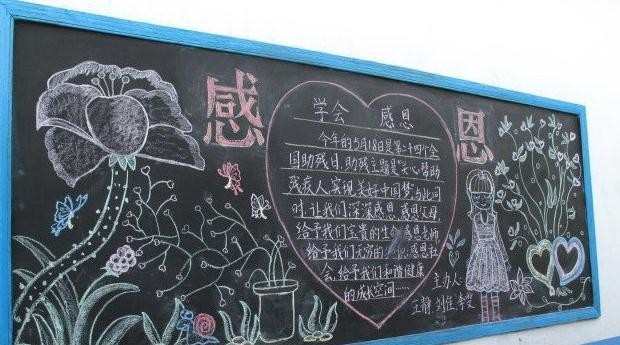 感
恩
学会 感恩
今年的5月18日是第十四个全
国助残日,助残主题是"关心帮助
残疾人,实现美好中国梦",与此同
时,让我们深深感恩,感恩父母
给予我们宝贵的生命,感恩老师
给予我们无穷的 ,感恩社
会,给予我们和谐健康
的成长空间……
主办人:
王静 刘佳